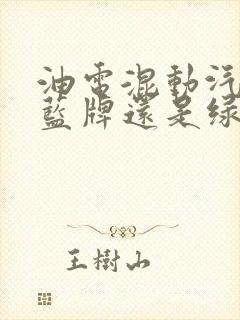 油電混動汽
藍牌還是綠
王樹山